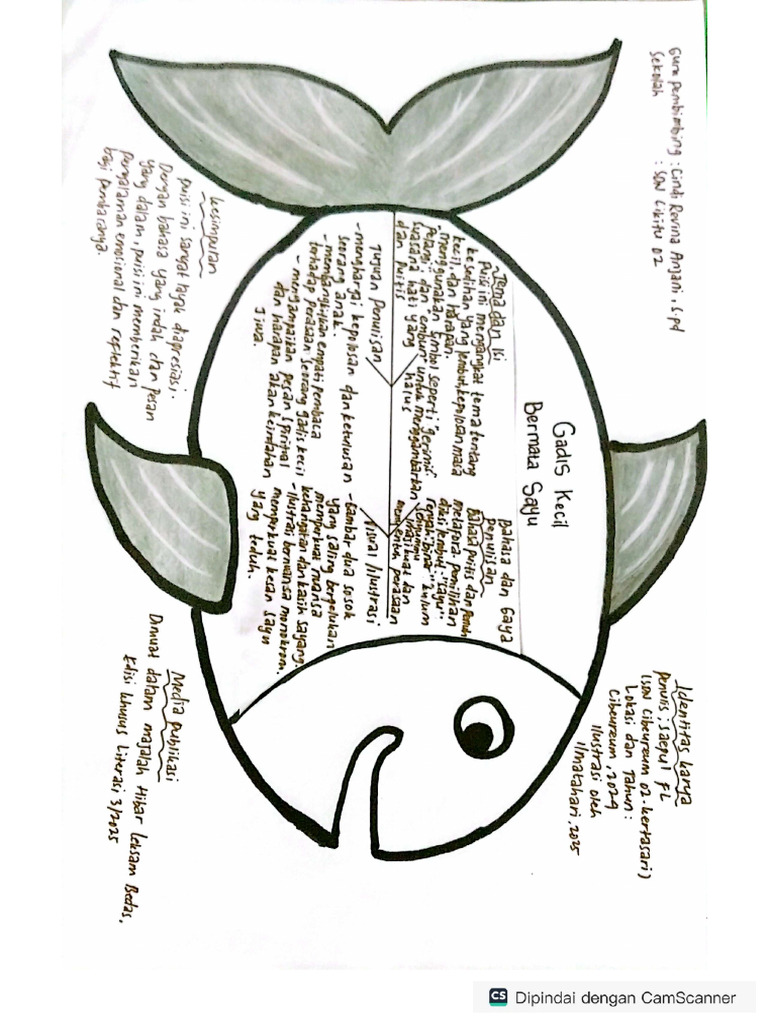 Guru pembimbing : Cindi Revina Anjani, S.pd
Sekolah : SDN Cikitu 02
Gadis Kecil
Bermata Sayu
Tema dan Isi
puisi ini mengangkat tema tentang
kesedihan yang lembut, kepolosan masa
kecil, dan harapan.
menggunakan simbol seperti "gerimis"
"pelangi" dan "embun" untuk menggambarkan
suasana hati yang halus
dan puitis
Bahasa dan Gaya
penulisan
Bahasa puitis dan penuh
metafora. pemilihan
diksi lembut "sayu"
"kulum
imasi kuat dan
menyentuh perasaan
Tujuan Penulisan
- menghargai kepolosan dan ketulusan
seorang anak.
- membangkitkan empati pembaca
terhadap perasaan seorang gadis kecil
- menyampaikan pesan spiritual
dan harapan akan keindahan
Jiwa.
Visual /Ilustrasi
- Gambar dua sosok
yang saling berpelukan
memperkuat nuansa
kehangatan dan kasih sayang.
- Ilustrasi bernuansa monokrom
memperkuat kesan sayu
yang teduh.
Identitas karya
penulis : Saepul FL
(SDN Cibeureum 02 - kertasari)
Lokasi dan Tahun :
Cibeureum, 2024
Ilustrasi oleh
llmatahari, 2025
kesimpulan
puisi ini sangat layak diapresiasi.
Dengan bahasa yang indah dan pesan
yang dalam, puisi ini memberikan
pengalaman emosional dan replektif
bagi pembacanya.
Media publikasi
Dimuat dalam majalah Hibar Leksam Bedas,
Edisi khusus Literasi 3/2025
CS Dipindai dengan CamScanner